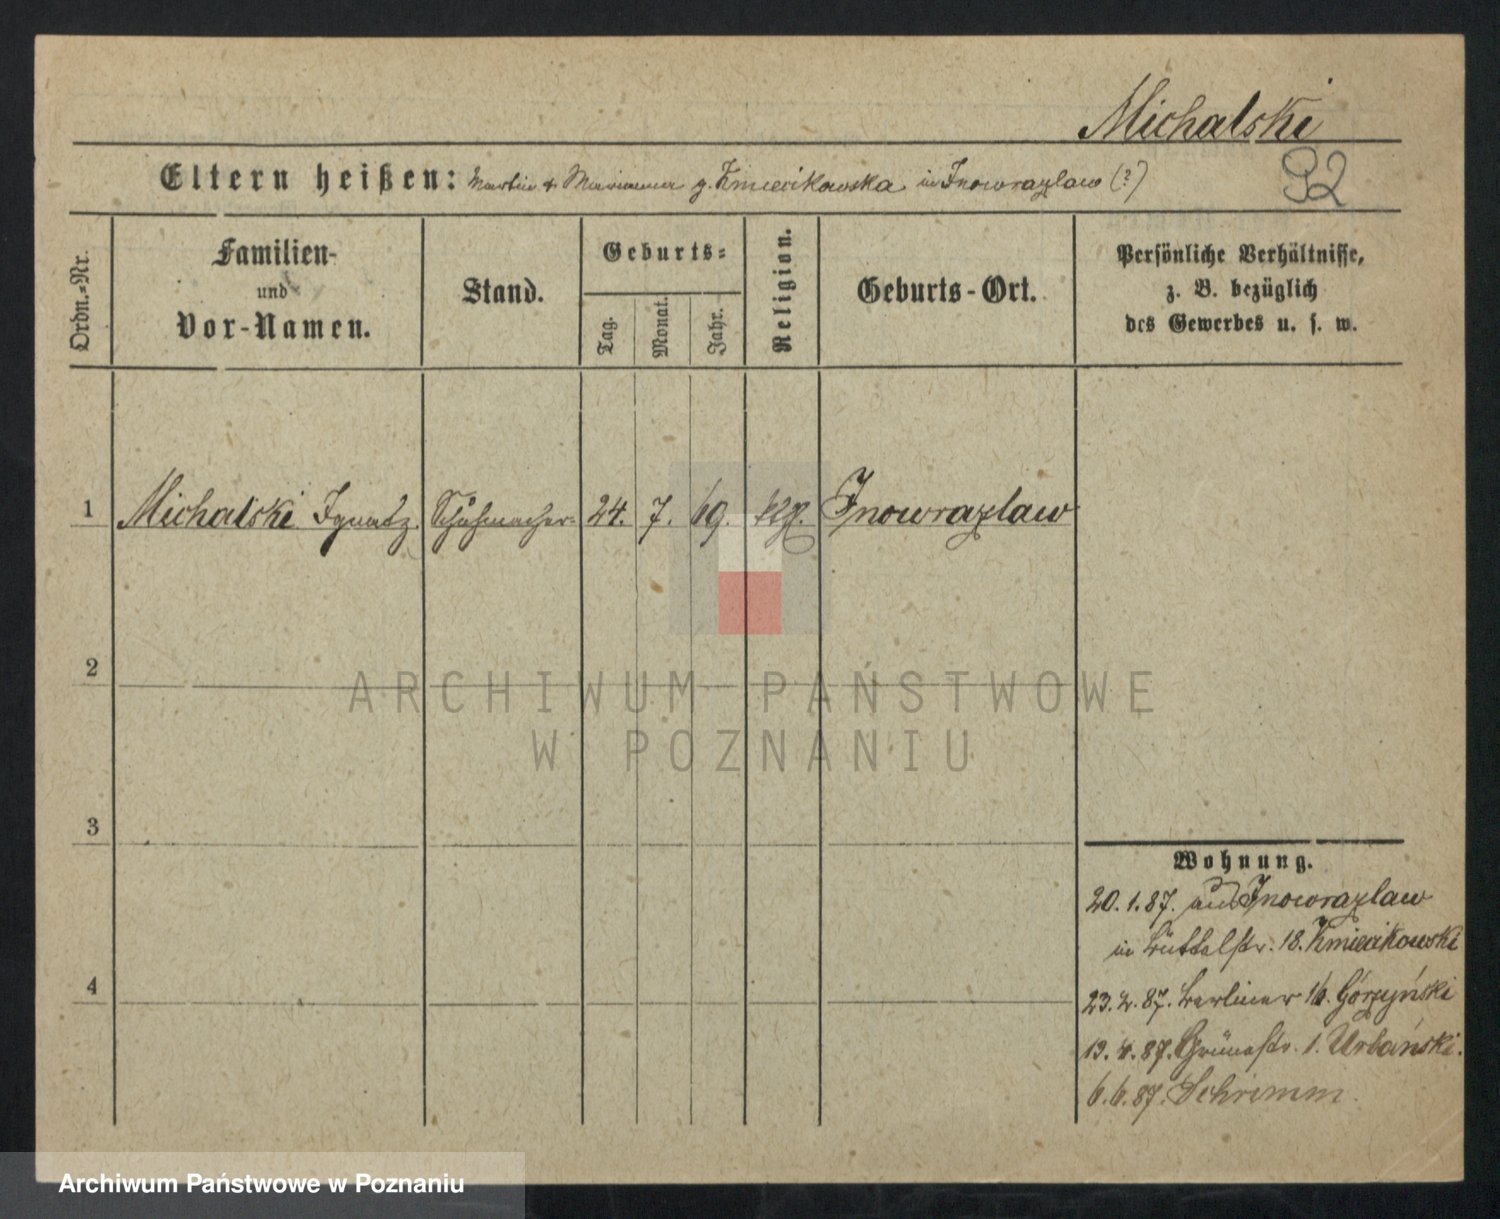 Michalski
92
Eltern heißen: Martin & Marianna g. Kmiecikowska in Inowrazlaw (?)
Ordn.-Nr.
Familien-
und
Vor-Namen.
Stand.
Geburts-
Tag.
Monat.
Jahr.
Religion.
Geburts-Ort.
Persönliche Verhältnisse,
z. B. bezüglich
des Gewerbes u. s. w.
1 Michalski Ignatz. Schuhmacher 24. 7. 69. Inowrazlaw
2
3
4
Wohnung.
20.1.87. aus Inowrazlaw
in Büttelstr. 18. Kmiecikowski
23.2.87. Berliner 16. Górzyński
19.4.87. Grünestr. 1. Urbański.
6.6.87. Schrimm.
ARCHIWUM PAŃSTWOWE
W POZNANIU
Archiwum Państwowe w Poznaniu